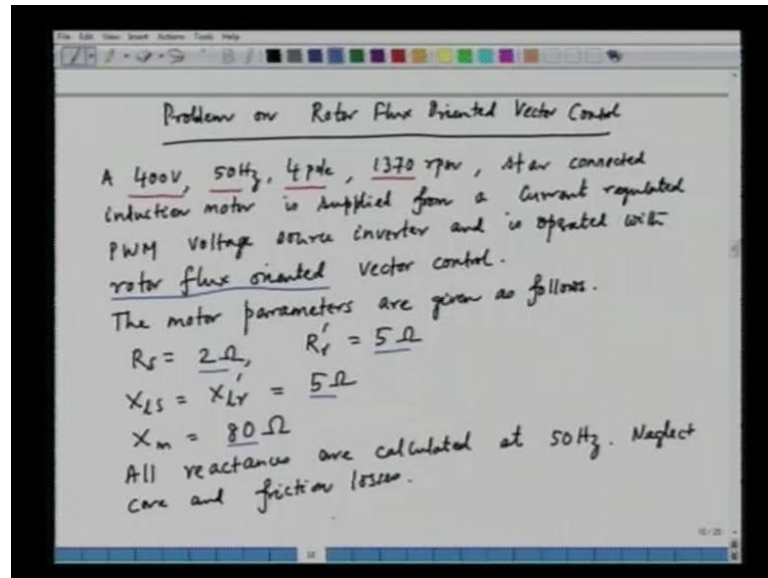 File Edit View Insert Actions Tools Help
Problem on Rotor Flux Oriented Vector Control
A 400V, 50Hz, 4 pole, 1370 rpm, star connected
induction motor is supplied from a current regulated
PWM voltage source inverter and is operated with
rotor flux oriented vector control.
The motor parameters are given as follows.
Rs = 2 Ω, Rr' = 5 Ω
Xls = Xlr' = 5 Ω
Xm = 80 Ω
All reactances are calculated at 50Hz. Neglect
core and friction losses.